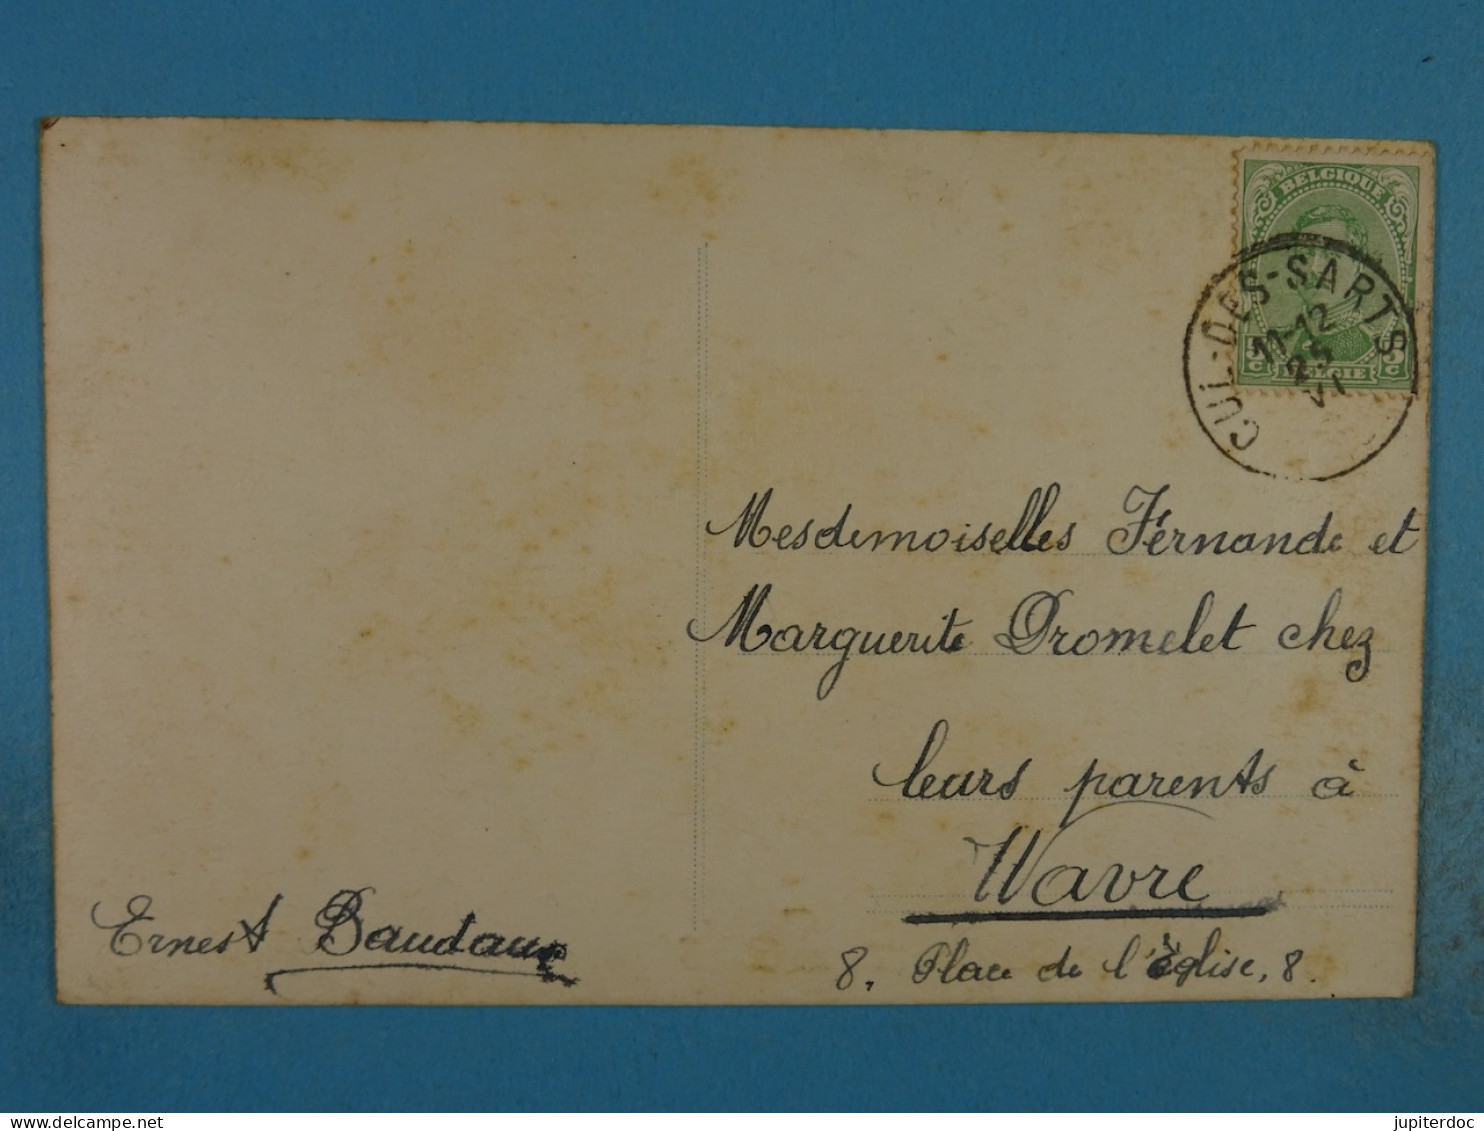 BELGIQUE
CUL-DES-SARTS
11-12
25
VI
5 c 5 c
BELGIE
Mesdemoiselles Férnande et
Marguerite Dromelet chez
leurs parents à
Wavre
Ernest Baudaux
8, Place de l'Église, 8.
www.delcampe.net
jupiterdoc